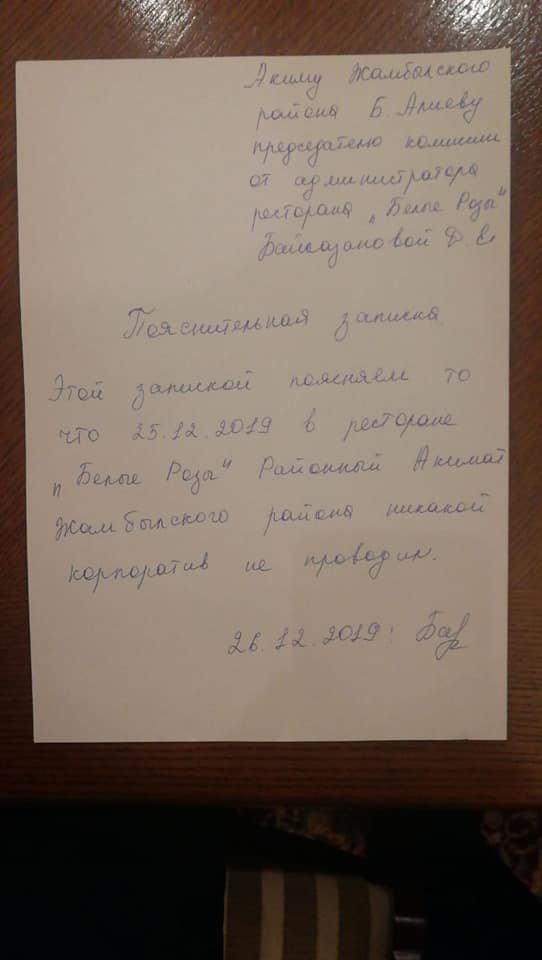 Акиму Жамбылского
района Б. Алиеву
председателю комиссии
от администратора
ресторана „Белые Розы"
Байсазановой Д. Е.
Пояснительная записка
Этой запиской поясняем то
что 25.12.2019 в ресторане
„Белые Розы" Районный Акимат
Жамбылского района никакой
корпоратив не проводил.
26.12.2019!